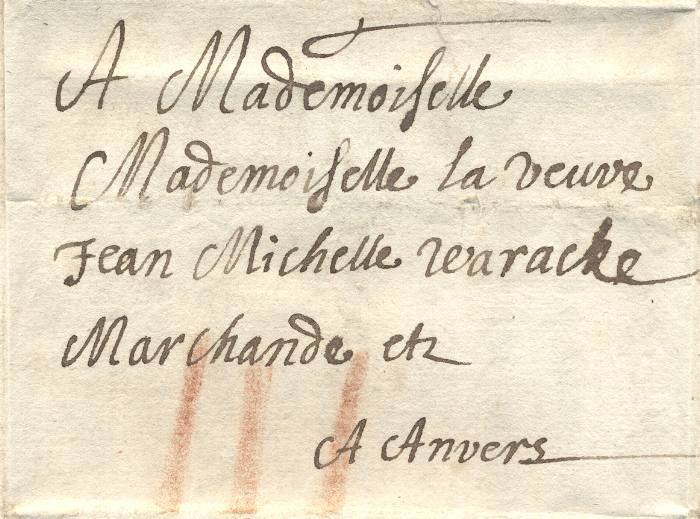 A Mademoiselle
Mademoiselle la veuve
Jean Michelle Waracke
Marchande etz
A Anvers